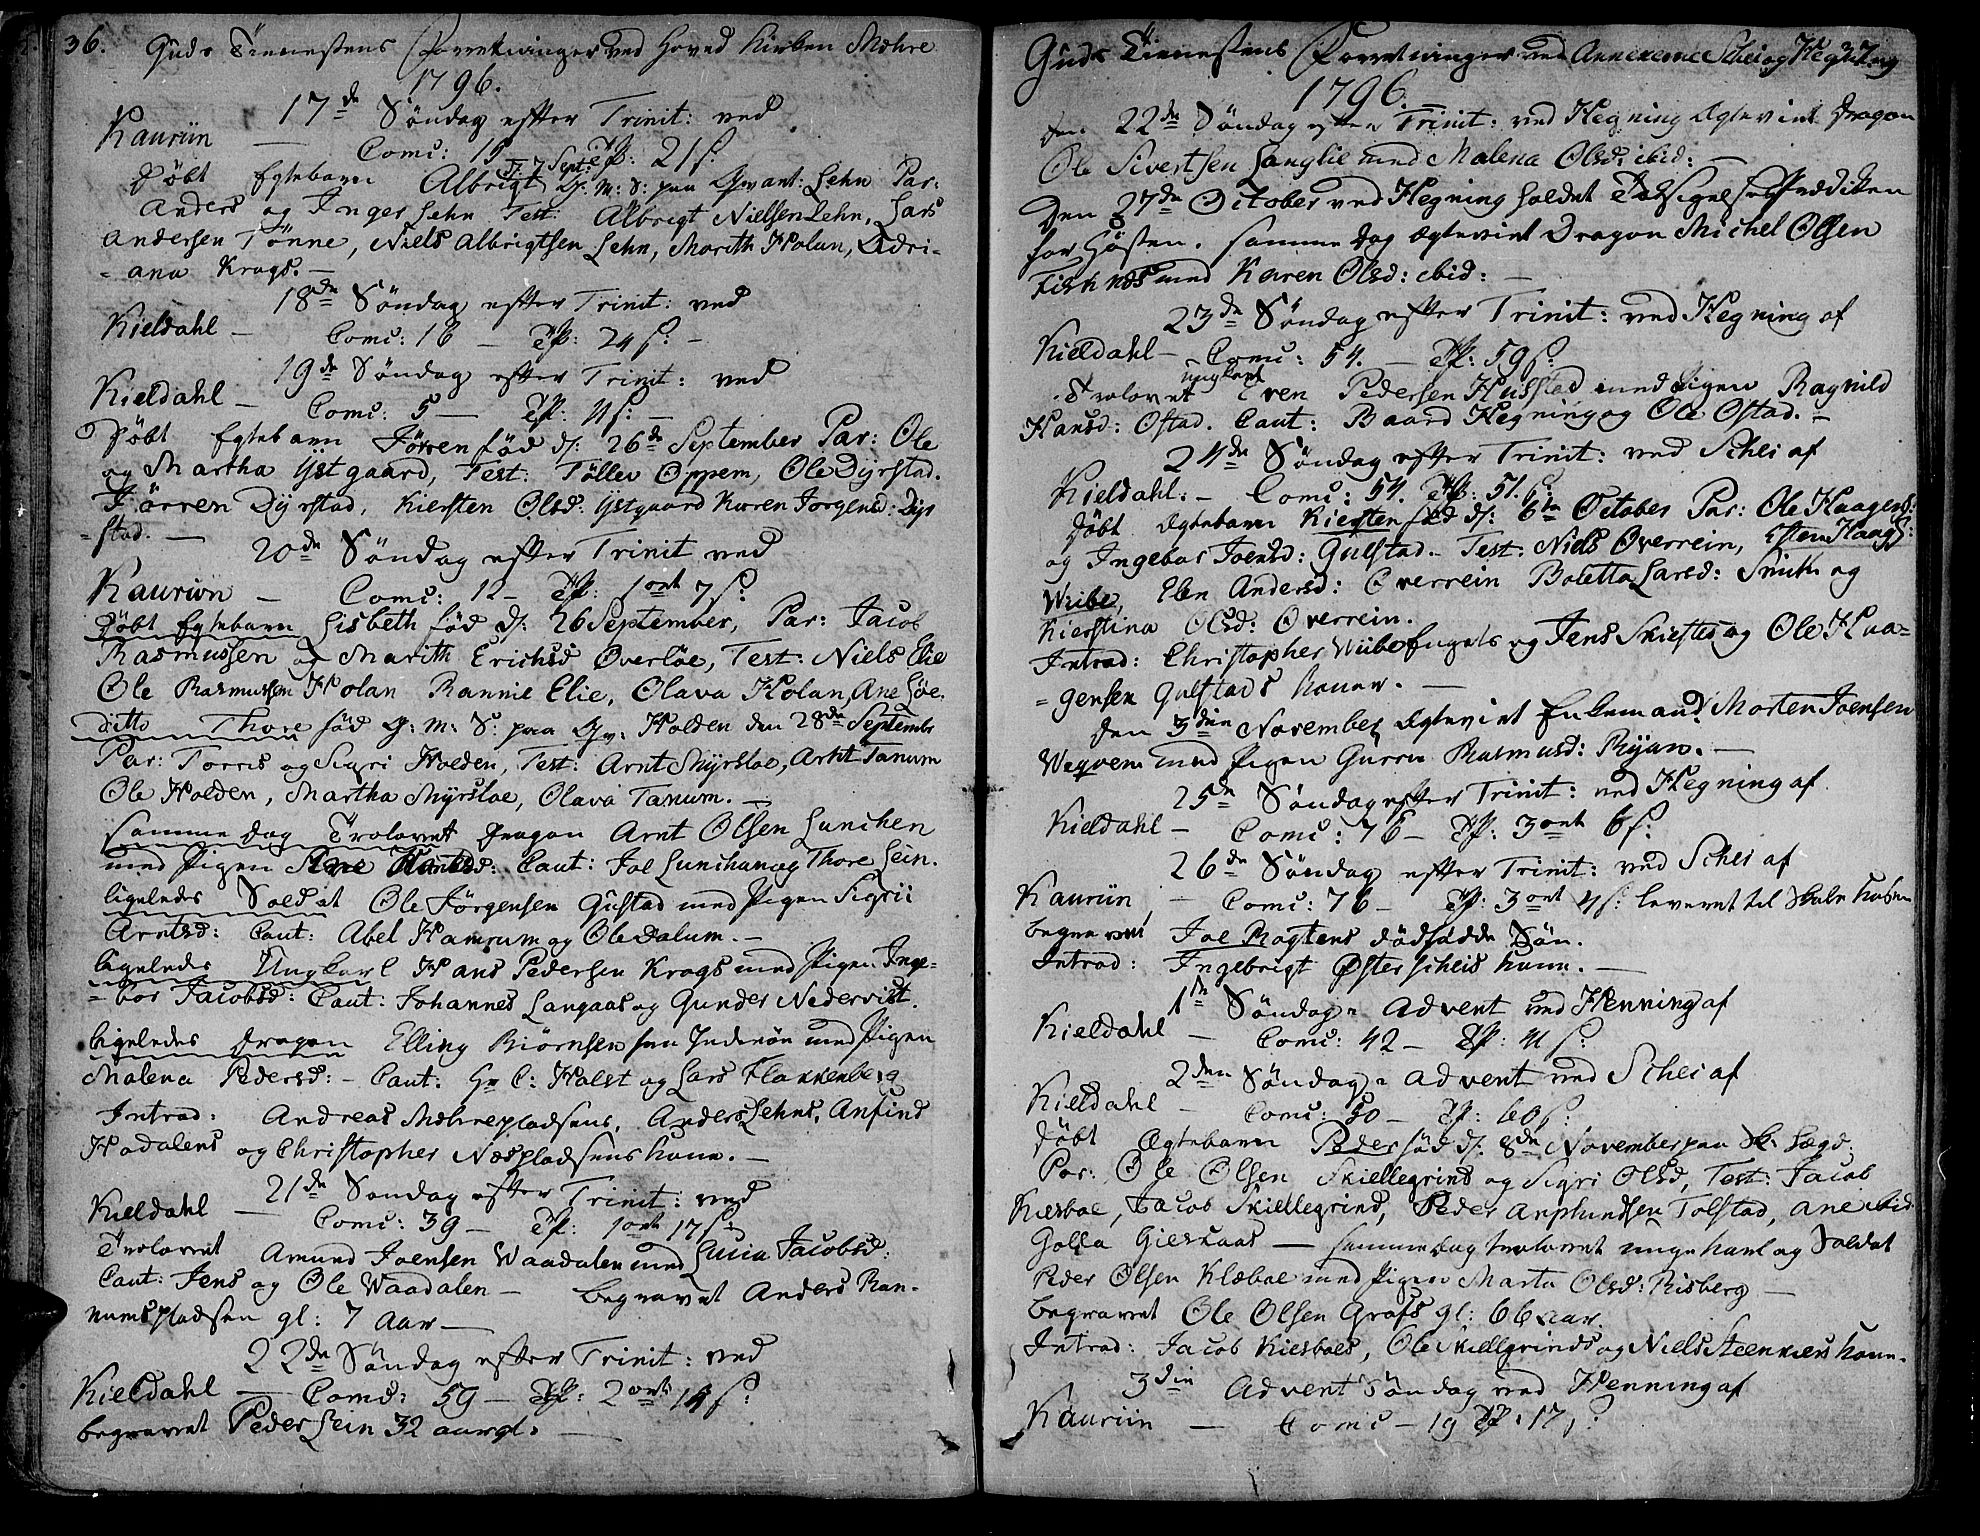 36. Guds Tienestens Forretninger ved Hoved Kirken Mæhre
1796.
17de Søndag efter Trinit: ved
Kauriin — Comu: 15 Tfl: 21 s:
d: 7 Sept:
Døbt Egtebarn Albrigt G. M: S: paa Qvant: Lehn Par:
Anders og Inger Lehn Test: Albrigt Nielsen Lehn, Lars
Andersen Tønne, Niels Albrigtsen Lehn, Morith Holan, Adri-
-ana Krogs. —
18de Søndag efter Trinit: ved
Kieldahl — Comu: 16 — Tfl: 24 s: -
19de Søndag efter Trinit: ved
Kieldahl — Comu: 5 — Tfl: 11 s: —
Døbt Egtebarn Jørren fød d: 26de September Par: Ole
og Martha Ystgaard, Test: Tøller Oppem, Ole Dyrstad.
Jørren Dyrstad, Kiersten Olsd: Ystgaard Karen Jorgensd: Dyr
-stad. —
20de Søndag efter Trinit ved
Kauriin — Comu: 12 — Tfl: 1 ort 7 s:
Døbt Egtebarn Lisbeth fød d: 26 September, Par: Jacob
Rasmussen og Marith Erichsd Overløe, Test: Niels Elie
Ole Rasmussen Holan Rannie Elie, Olava Holan, Ane Løe.
ditto Thore fød G: M: S: paa Gv: Holden den 28de Septembr
Par: Torris og Sigri Holden, Test: Arnt Myrsloe, Arnt Tanum
Ole Holden, Martha Myrsloe, Olava Tanum. —
samme dag Trolovet Dragon Arnt Olsen Lunchen
med Pigen Ane Caut: Joe Lunchan og Thore Lein.
ligeledes Soldat Ole Jørgensen Gustad med Pigen Sigrii
Arntsd: Caut: Abel Hamrum og Ole Dalum. —
ligeledes Ungkarl Hans Pedersen Krogs med Pigen Inge-
-bor Jacobsd: Caut: Johannes Langaas og Gunder Nedervist.
ligeledes Dragon Elling Biørnsen fra Inderøn med Pigen
Malena Pedersd: — Caut: Hr C: Holst og Lars Flakkenberg
Introd: Andreas Mæhrepladsens, Anders Lehns, Anfind
Hodalens og Christopher Næspladsens kone. —
21de Søndag efter Trinit: ved
Kieldahl — Comu: 39 — Tfl: 1 ort 17 s:
Trolovet Amund Joensen Waadalen med Lucia Jacobsd:
Caut: Jens og Ole Waadalen — begravet Anders Ran-
numspladsen gl: 7 Aar —
22de Søndag efter Trinit: ved
Kieldahl — Comu: 59 — Tfl: 2 ort 14 s:
begravet Peder Lein 32 aar gl. —
Guds Tienestens Forretninger ved Annexerne Schei og Hegning 37.
1796. —
den 22de Søndag efter Trinit: ved Hegning Egteviet Dragon
Ole Sivertsen Langlie med Malena Olsd: ibid: —
Den 27de October ved Hegning holdet Taksigelses Prædiken
for Høsten. samme dag Egteviet Dragon Michel Olsen
Fisknæs med Karen Olsd: ibid: —
23de Søndag efter Trinit: ved Hegning af
Kieldahl — Comu: 54. — Tfl: 59 s:
ungkarl
Trolovet Even Pedersen Husstad med Pigen Ragnild
Hansd: Østad. Caut: Baard Hegning og Ole Østad. —
24de Søndag efter Trinit: ved Schei af
Kieldahl: — Comu: 54. Tfl: 51. s:
Døbt Egtebarn Kiersten fød d: 6te October Par: Ole Haagens:
og Ingebor Joensd: Gulstad. Test: Niels Overrein, Esten Haags:
Wiibe, Elen Andersd: Overrein Boletta Larsd: Smith og
Kierstina Olsd: Overrein.
Introd: Christopher Wiibe Engets og Jens Skieftes og Ole Haa-
-gensen Gulstads koner. —
den 3die November Egteviet Enkemand Morten Joensen
Weqvem med Pigen Gurru Rasmusd: Ryan. —
25de Søndag efter Trinit: ved Hegning af
Kieldahl — Comu: 76 — Tfl: 3 ort 6 s:
26de Søndag efter Trinit: ved Schei af
Kauriin — Comu: 76 — Tfl: 3 ort 4 s: leveret til Skole kassen
begravet Joe Rogtens dødfødde Søn.
Introd: Ingebrigt Østerscheis kone. —
1de Søndag i Advent ved Henning af
Kieldahl — Comu: 42 — Tfl: 41 s:
2den Søndag i Advent ved Schei af
Kieldahl — Comu: 50 — Tfl: 60 s:
Døbt Egtebarn Peder fød d: 8de November paa Sk. Lægd:
Par: Ole Olsen Skiellegrind og Sigri Olsd, Test: Jacob
Kiesboe, Jacob Skiellegrind, Peder Anphindsen Tolstad, Ane ibid
Golla Gieskaas — samme dag trolovet unge karl og Soldat
Peder Olsen Klæboe med Pigen Marta Olsd: Risberg —
begravet Ole Olsen Grøfs gl: 66 aar.
Introd: Jacob Kiesboes, Ole Skiellgrinds og Niels Steenkiers kone.
3die Advent Søndag ved Henning af
Kauriin — Comu — 19 Tfl: 17 s: